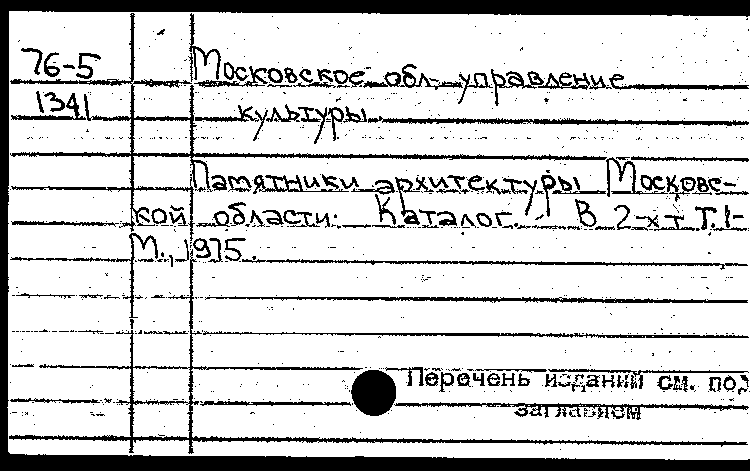 76-5 Московское обл. управление
1341 культуры.
Памятники архитектуры Московс-
кой области: Каталог. - В 2-х т. Т. 1-
М., 1975.
Перечень изданий см. под
заглавием